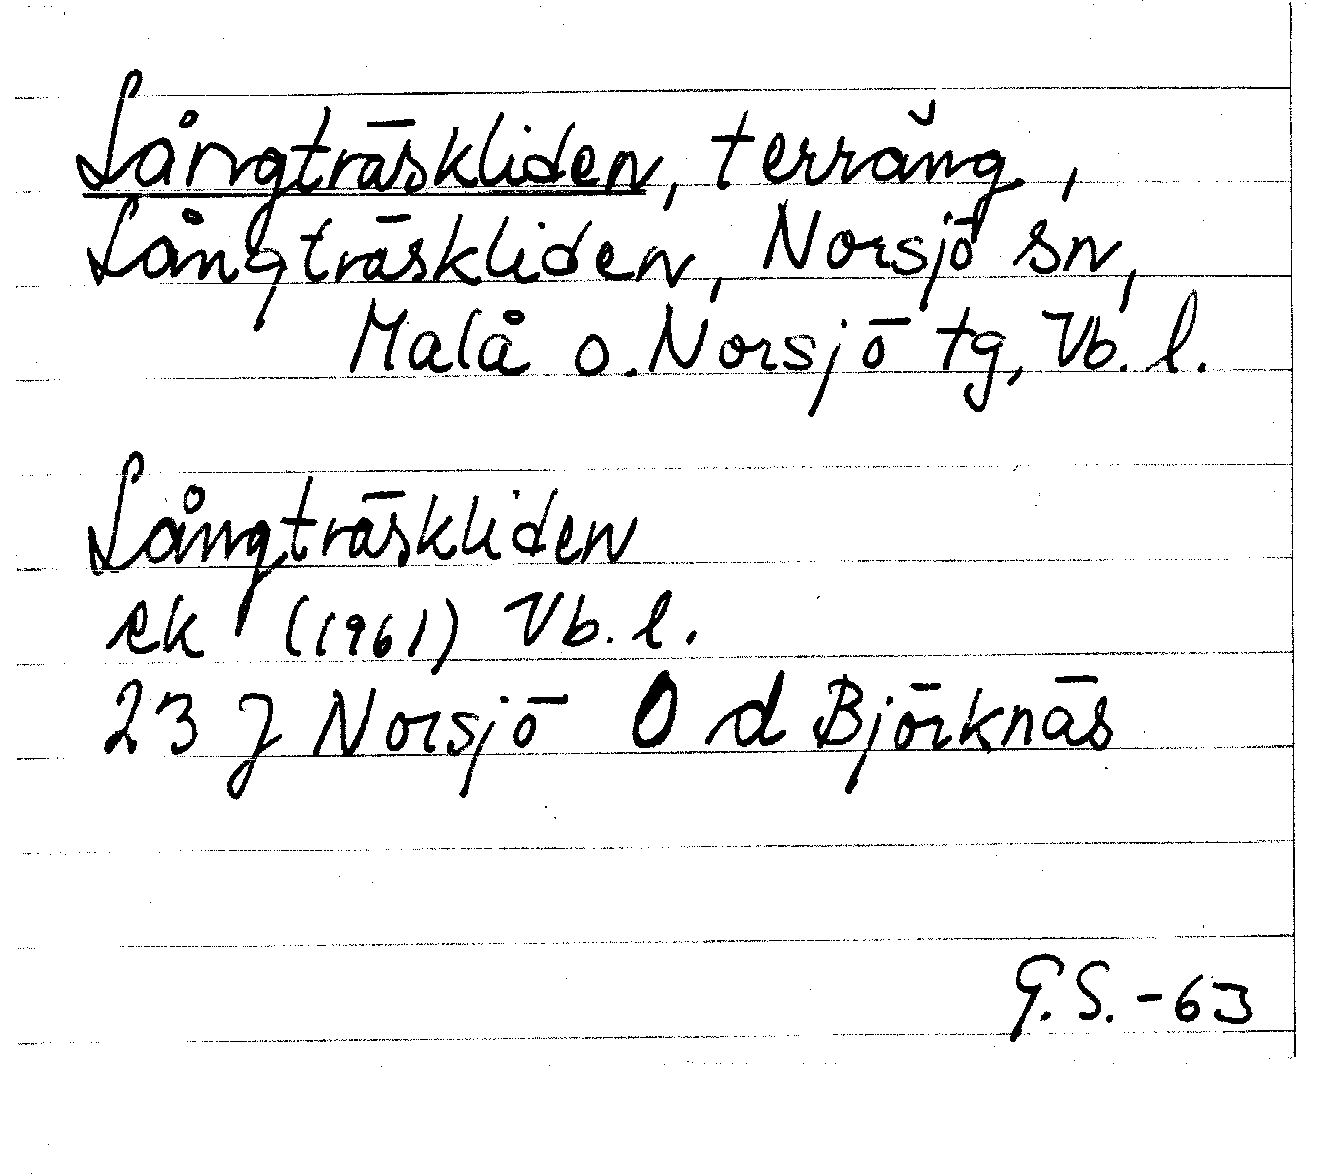 Långträskliden, terräng,
Långträskliden, Norsjö sn,
Malå o. Norsjö tg, Vb. l.
Långträskliden
ek (1961) Vb. l.
23 J Norsjö O d Björknäs
G.S. - 63